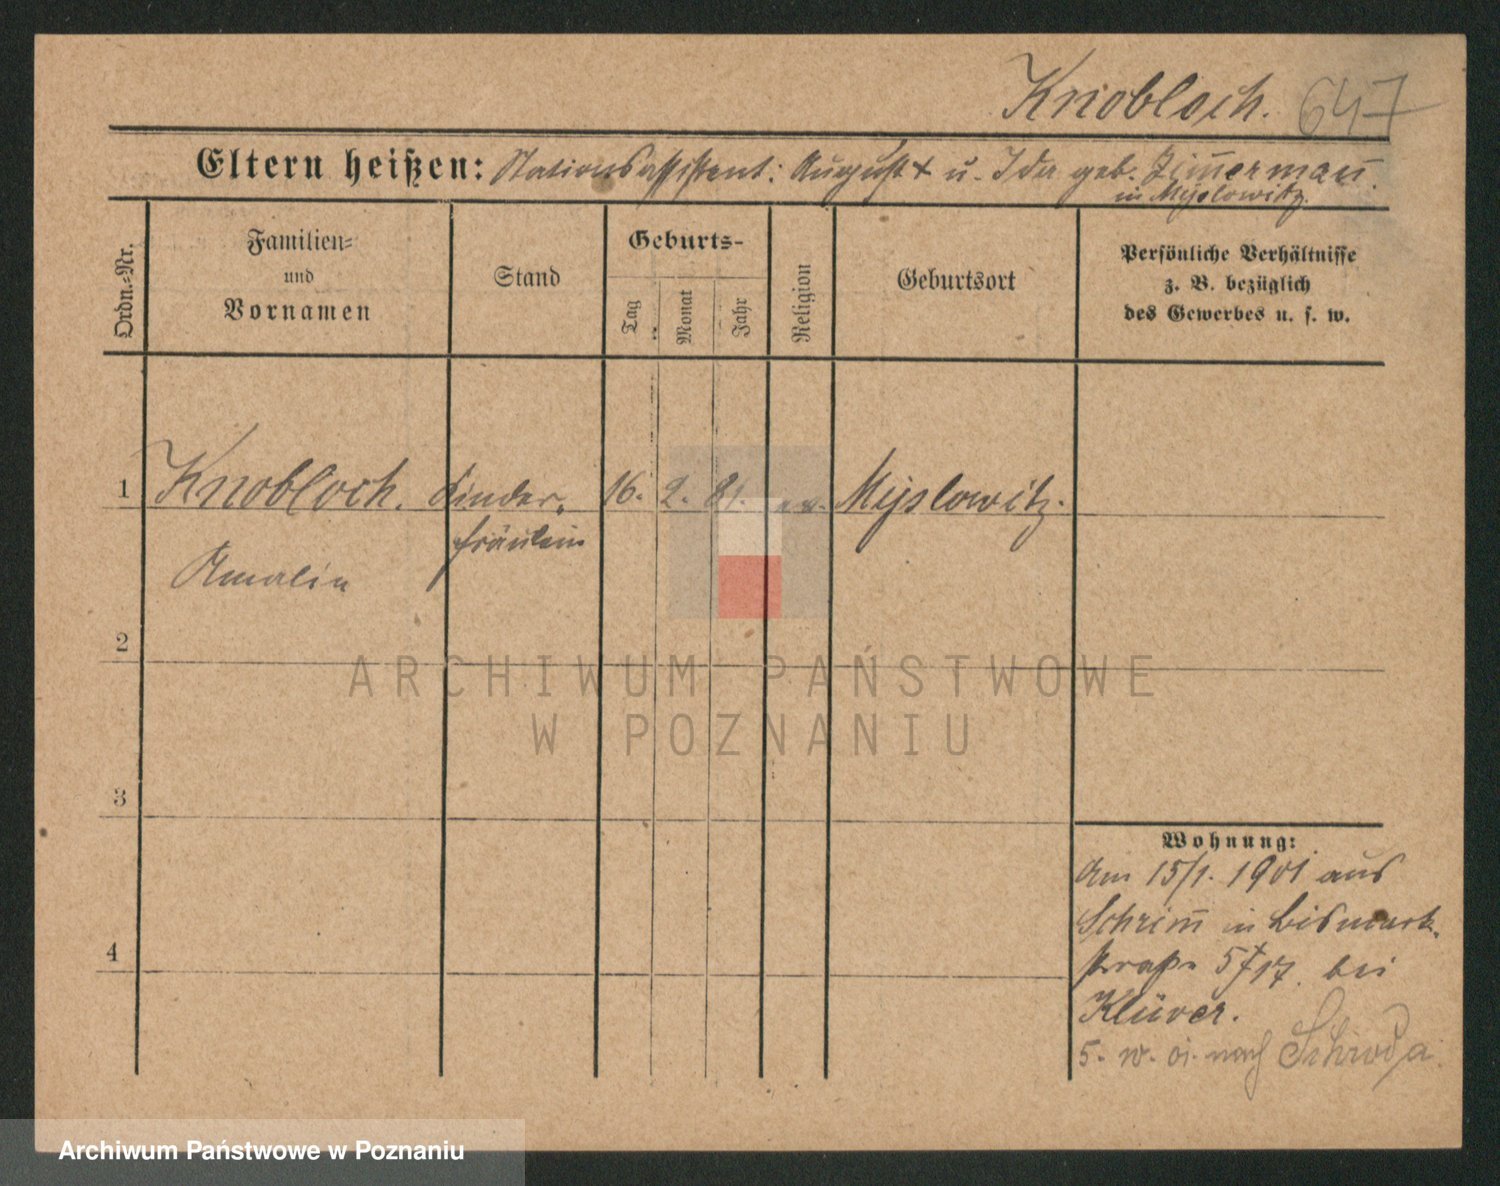 Knobloch. 647
Eltern heißen: Stationsassistent: August + u. Ida geb. Zimmermann
in Myslowitz.
Ordn.-Nr.
Familien-
und
Vornamen
Stand
Geburts-
Tag
Monat
Jahr
Religion
Geburtsort
Persönliche Verhältnisse
z. B. bezüglich
des Gewerbes u. s. w.
1 Knobloch. Kinder- 16. 2. 81. ev. Myslowitz.
fräulein
Amalie
2
3
4
Wohnung:
Am 15/1. 1901 aus
Schrim̅ in Bismark-
straße 5/17. bei
Klüver.
5. nach Schroda
ARCHIWUM PAŃSTWOWE
W POZNANIU
Archiwum Państwowe w Poznaniu